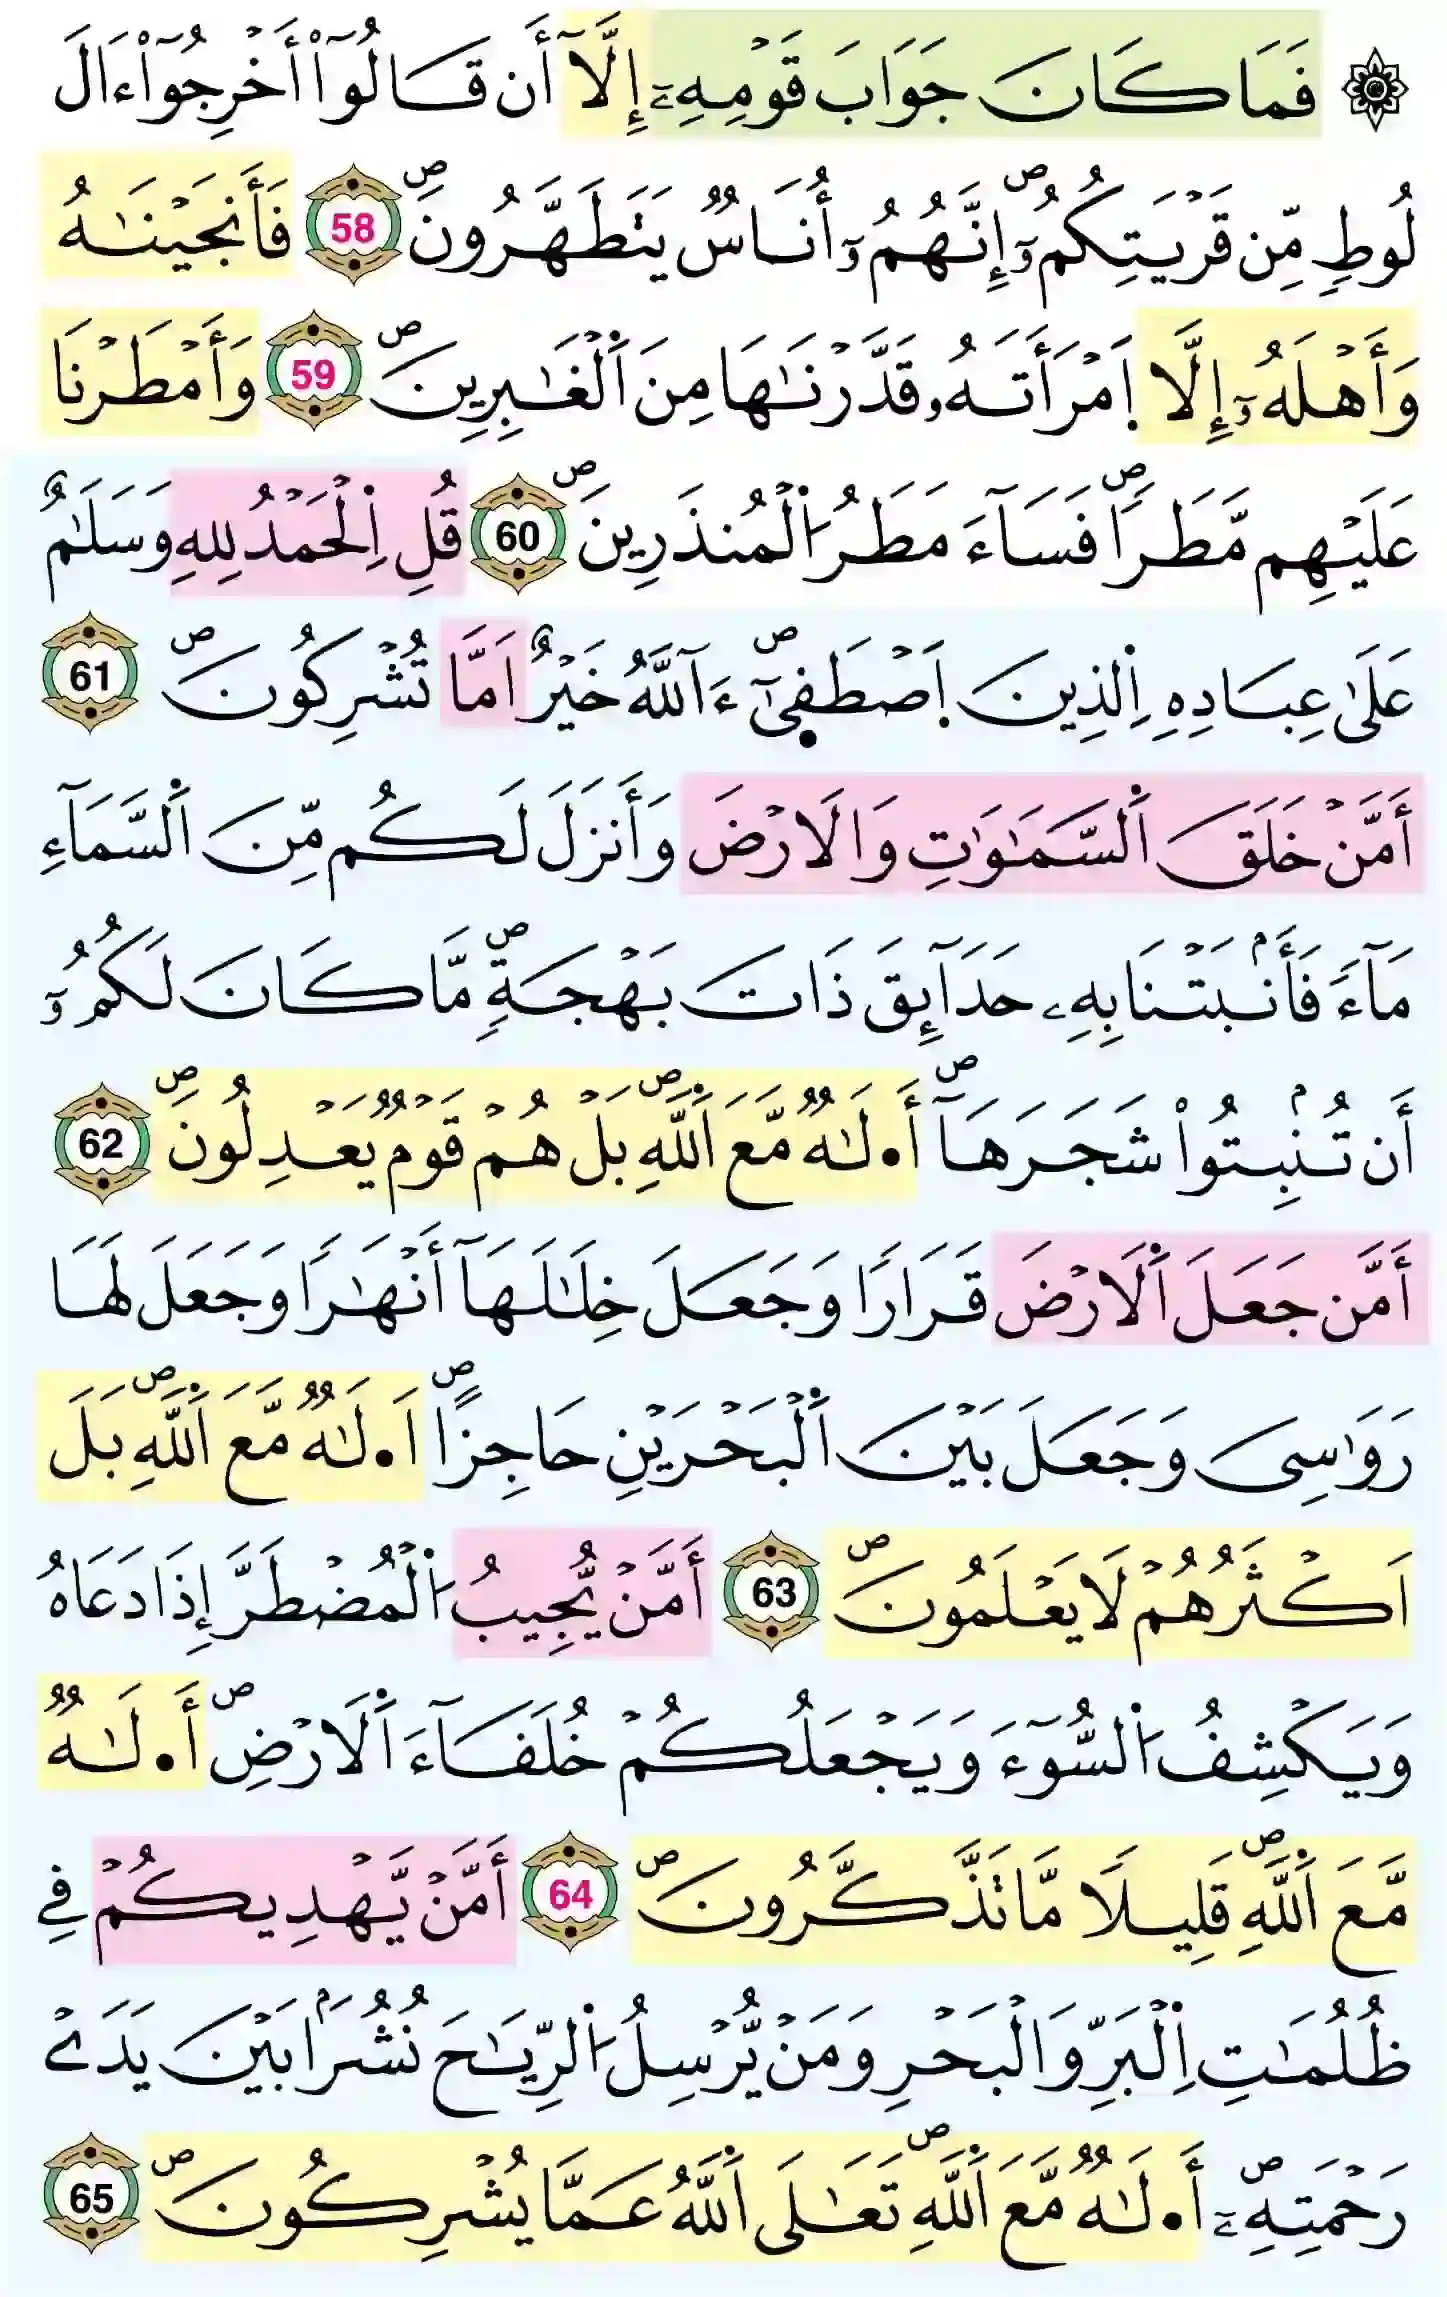 ۞ فَمَا كَانَ جَوَابَ قَوْمِهِۦٓ إِلَّآ أَن قَالُوٓاْ أَخْرِجُوٓاْ ءَالَ
لُوطٍ مِّن قَرْيَتِكُمُۥٓۖ إِنَّهُمُۥٓ أُنَاسٌ يَتَطَهَّرُونَۖ 58 فَأَنجَيْنَٰهُ
وَأَهْلَهُۥٓ إِلَّا اَ۪مْرَأَتَهُۥ قَدَّرْنَٰهَا مِنَ اَ۬لْغَٰبِرِينَۖ 59 وَأَمْطَرْنَا
عَلَيْهِم مَّطَراٗۖ فَسَآءَ مَطَرُ اُ۬لْمُنذَرِينَۖ 60 قُلِ اِ۬لْحَمْدُ لِلهِ وَسَلَٰمٌ
عَلَىٰ عِبَادِهِ اِ۬لذِينَ اَ۪صْطَف۪ىٰٓۖ ءَآللَّهُ خَيْرٌ اَمَّا تُشْرِكُونَۖ 61
أَمَّنْ خَلَقَ اَ۬لسَّمَٰوَٰتِ وَالَارْضَ وَأَنزَلَ لَكُم مِّنَ اَ۬لسَّمَآءِ
مَآءَ فَأَنۢبَتْنَا بِهِۦ حَدَآئِقَ ذَاتَ بَهْجَةٍۖ مَّا كَانَ لَكُمُۥٓ
أَن تُنۢبِتُواْ شَجَرَهَآۖ أَ•لَٰهٌ مَّعَ اَ۬للَّهِۖ بَلْ هُمْ قَوْمٌ يَعْدِلُونَۖ 62
أَمَّن جَعَلَ اَ۬لَارْضَ قَرَارًا وَجَعَلَ خِلَٰلَهَآ أَنْهَٰرًا وَجَعَلَ لَهَا
رَوَٰسِىَ وَجَعَلَ بَيْنَ اَ۬لْبَحْرَيْنِ حَاجِزًاۖ اَ•لَٰهٌ مَّعَ اَ۬للَّهِۖ بَلَ
اَكْثَرُهُمْ لَا يَعْلَمُونَۖ 63 أَمَّنْ يُّجِيبُ اُ۬لْمُضْطَرَّ إِذَا دَعَاهُ
وَيَكْشِفُ اُ۬لسُّوٓءَ وَيَجْعَلُكُمْ خُلَفَآءَ اَ۬لَارْضِۖ أَ•لَٰهٌ
مَّعَ اَ۬للَّهِۖ قَلِيلًا مَّا تَذَّكَّرُونَۖ 64 أَمَّنْ يَّهْدِيكُمْ فِے
ظُلُمَٰتِ اِ۬لْبَرِّ وَالْبَحْرِ وَمَنْ يُّرْسِلُ اُ۬لرِّيَٰحَ نُشُراَۢ بَيْنَ يَدَےْ
رَحْمَتِهِۦٓۖ أَ•لَٰهٌ مَّعَ اَ۬للَّهِۖ تَعَٰلَى اَ۬للَّهُ عَمَّا يُشْرِكُونَۖ 65